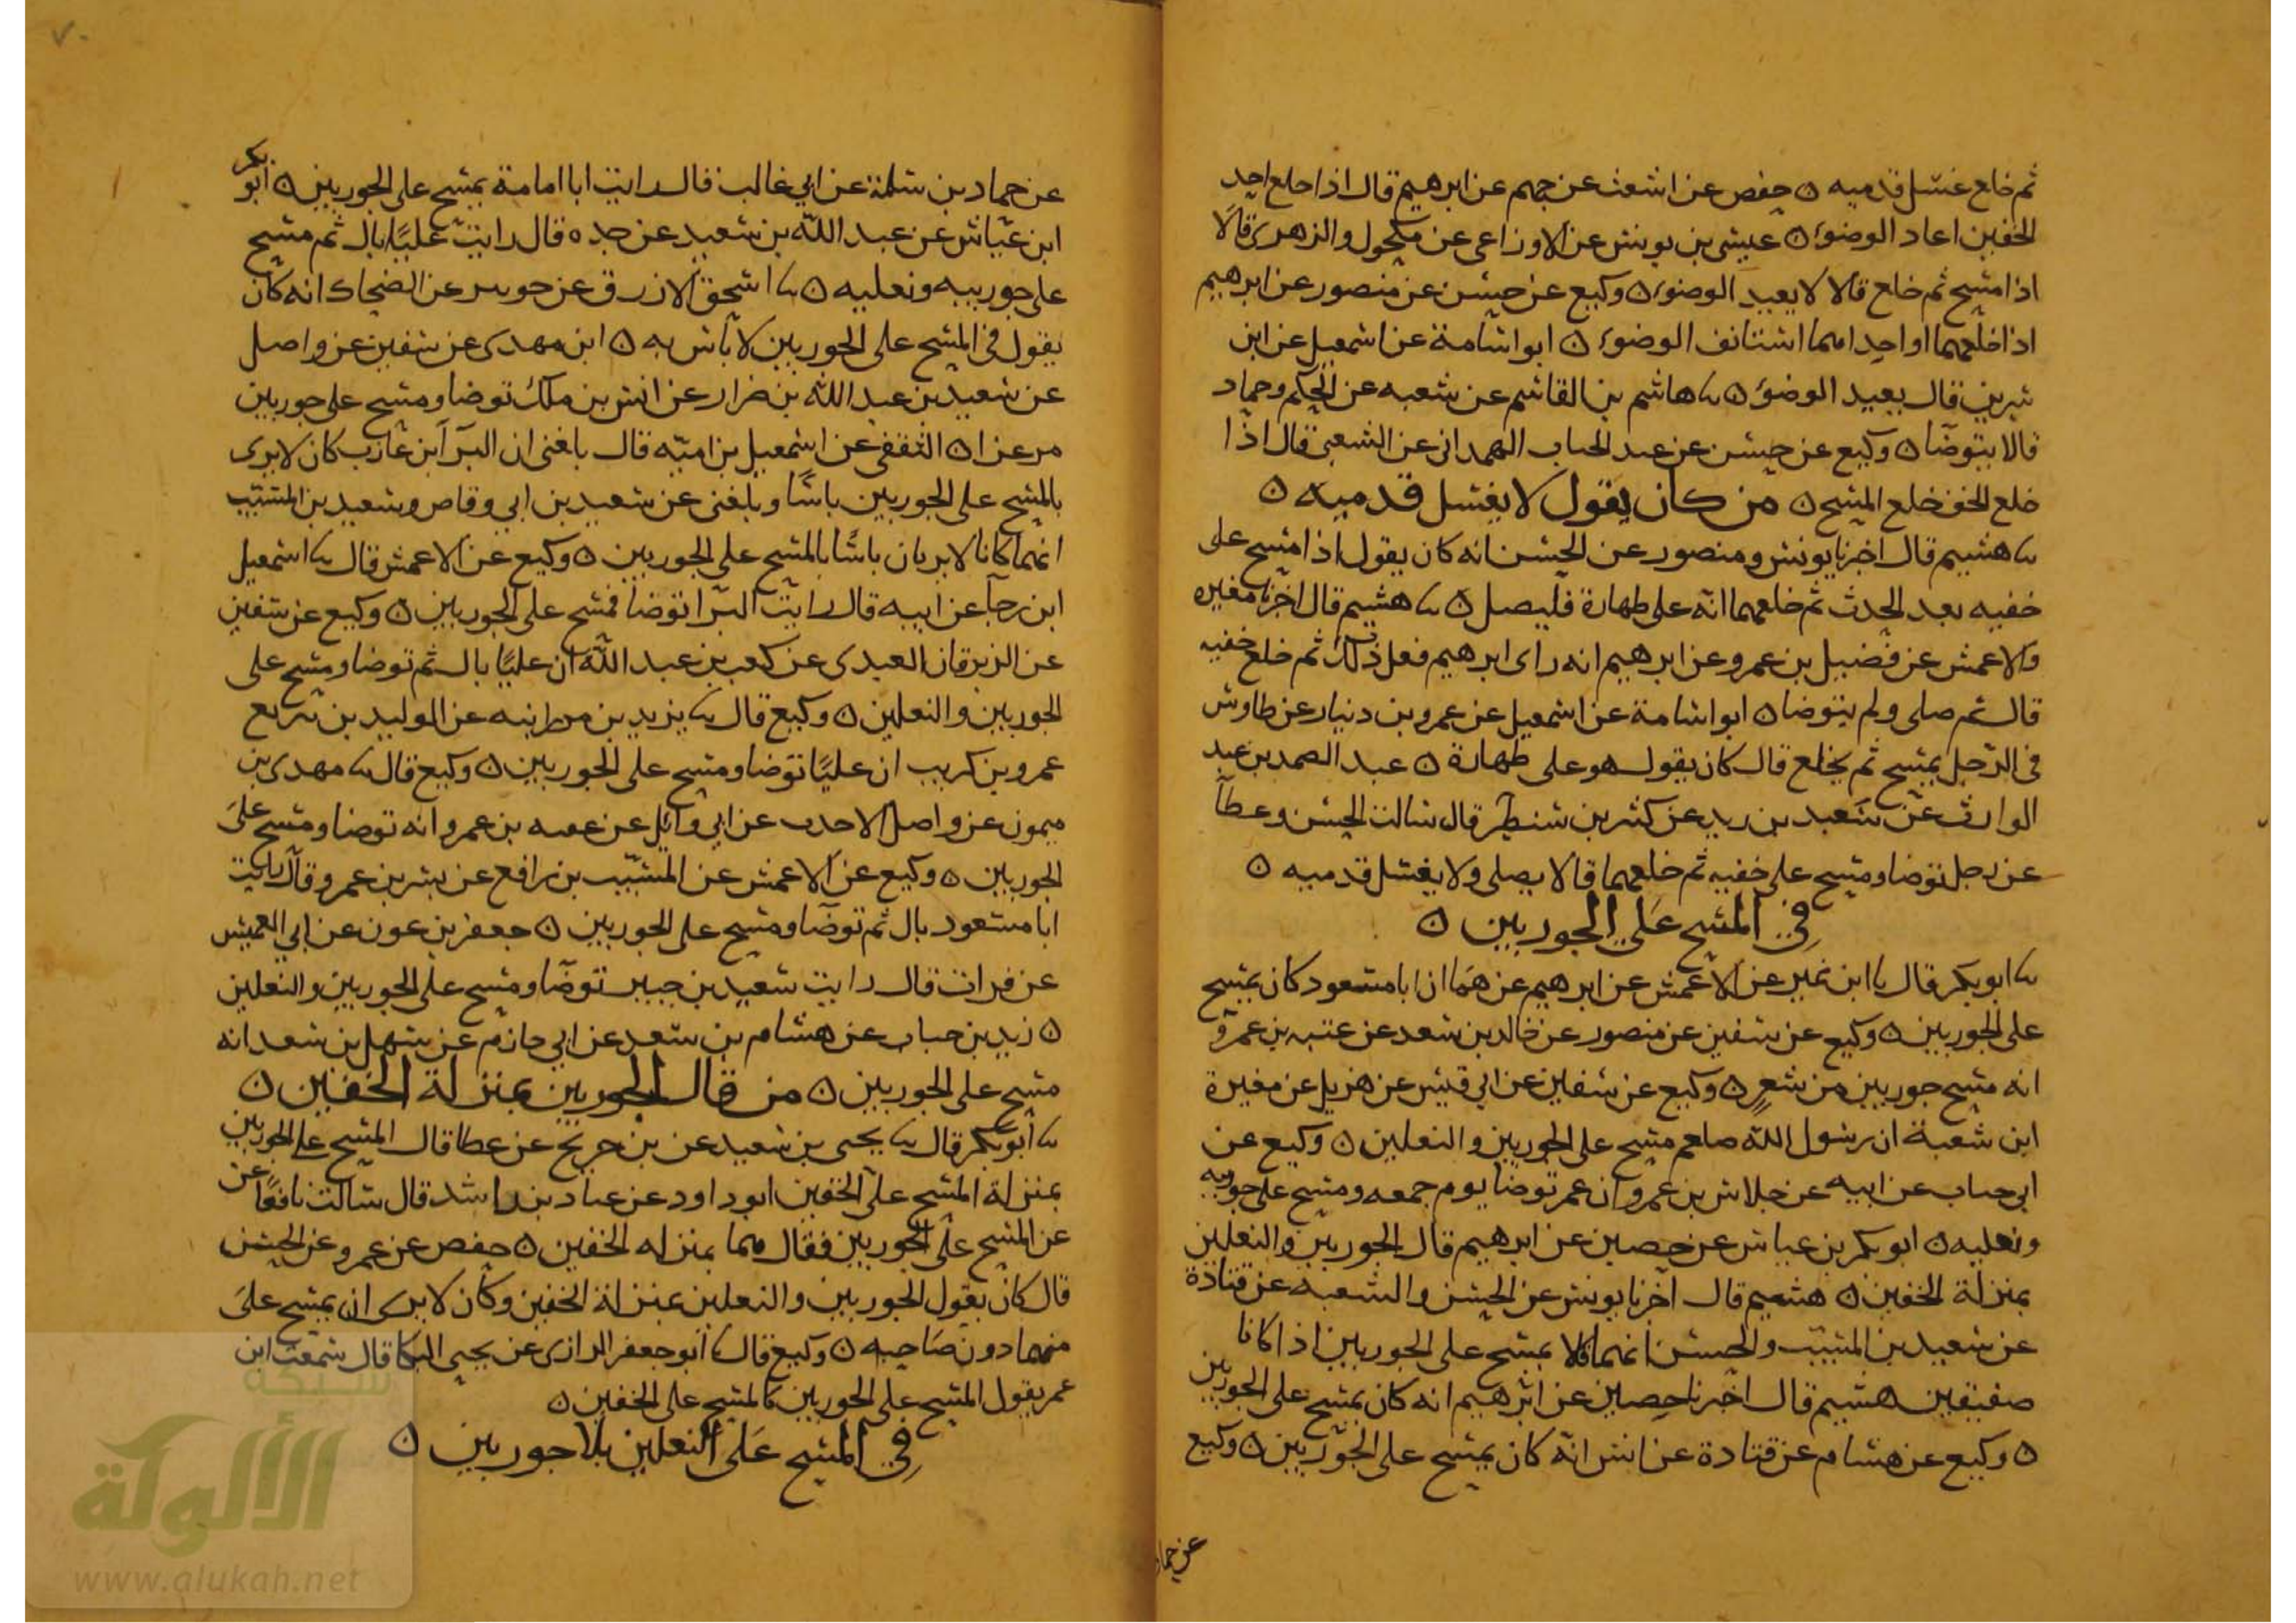 ثم خلع غسل قدميه ه حفص عن اشعث عن جهم عن ابرهيم قال اذا خلع احد
الخفين اعاد الوضوء ه عيسى بن يونس عن الاوزاعى عن مكحول والزهرى قالا
اذا مسح ثم خلع قالا لا يعيد الوضوء ه وكيع عن حسن عن منصور عن ابرهيم
اذا خلعهما او احداهما استانف الوضوء ه ابو اسامة عن اسمعيل عن ابن
سيرين قال يعيد الوضوء ه نا هاشم بن القاسم عن شعبه عن الحكم وحماد
قالا يتوضا ه وكيع عن حسن عن عبد الجبار الهمدانى عن الشعبى قال اذا
خلع الخف خلع المسح ه من كان يقول لا يغسل قدميه ه
نا هشيم قال اخبرنا يونس ومنصور عن الحسن انه كان يقول اذا مسح على
خفيه بعد الحدث ثم خلعهما انه على طهارة فليصل ه نا هشيم قال اخبرنا مغيره
والاعمش عن فضيل بن عمرو عن ابرهيم انه راى ابرهيم فعل ذلك ثم خلع خفيه
قال ثم صلى ولم يتوضا ه ابو اسامة عن اسمعيل عن عمرو بن دينار عن طاوس
فى الرجل يمسح ثم يخلع قال كان يقول هو على طهارة ه عبد الصمد بن عبد
الوارث عن سعيد بن زيد عن كثير بن شنظير قال سالت الحسن وعطآ
عن رجل توضا ومسح على خفيه ثم خلعهما قالا يصلى ولا يغسل قدميه ه
في المسح على الجوربين ه
نا ابو بكر قال نا ابن نمير عن الاعمش عن ابرهيم عن همام ان ابا مسعود كان يمسح
على الجوربين ه وكيع عن سفين عن منصور عن خالد بن سعد عن عتبه بن عمرو
انه مسح جوربين من شعر ه وكيع عن سفين عن ابي قيس عن هزيل عن مغيرة
ابن شعبة ان رسول الله صلعم مسح على الجوربين والنعلين ه وكيع عن
ابى جناب عن ابيه عن خلاس بن عمرو ان عمر توضا يوم جمعه ومسح على جوربيه
ونعليه ه ابو بكر بن عياش عن حصين عن ابرهيم قال الجوربين والنعلين
بمنزلة الخفين ه هشيم قال اخبرنا يونس عن الحسن والشعبه عن قتادة
عن سعيد بن المسيب والحسن انهما قالا يمسح على الجوربين اذا كانا
صفيقين هشيم قال اخبرنا حصين عن ابرهيم انه كان يمسح على الجوربين
ه وكيع عن هشام عن قتادة عن انس انه كان يمسح على الجوربين ه وكيع
عن حماد
٧٠
عن حماد بن سلمة عن ابي غالب قال رايت ابا امامة يمسح على الجوربين ه ابو بكر
ابن عياش عن عبد الله بن سعيد عن جده قال رايت عليًا بال ثم مسح
على جوربيه ونعليه ه نا اسحق الازرق عن جويبر عن الضحاك انه كان
يقول فى المسح على الجوربين لا باس به ه ابن مهدى عن سفين عن واصل
عن سعيد بن عبد الله بن ضرار عن انس بن ملك توضا ومسح على جوربين
مرعزا ه الثقفى عن اسمعيل بن اميه قال بلغنى ان البرآ ابن عازب كان لا يرى
بالمسح على الجوربين باسًا وبلغنى عن سعيد بن ابي وقاص وسعيد بن المسيب
انهما كانا لا يريان باسًا بالمسح على الجوربين ه وكيع عن الاعمش قال نا اسمعيل
ابن رجآ عن ابيه قال رايت البرا توضا فمسح على الجوربين ه وكيع عن سفين
عن الزبرقان العبدى عن كعب بن عبد الله ان عليًا بال ثم توضا ومسح على
الجوربين والنعلين ه وكيع قال نا يزيد بن مردانبه عن الوليد بن سريع
عمرو بن كريب ان عليًا توضا ومسح على الجوربين ه وكيع قال نا مهدى بن
ميمون عن واصل الاحدب عن ابي وآيل عن عقبه بن عمرو انه توضا ومسح على
الجوربين ه وكيع عن الاعمش عن المسيب بن رافع عن بشر بن عمرو قال رايت
ابا مسعود بال ثم توضا ومسح على الجوربين ه جعفر بن عون عن ابي العميس
عن فرات قال رايت سعيد بن جبير توضا ومسح على الجوربين والنعلين
ه زيد بن حباب عن هشام بن سعد عن ابي حازم عن سهل بن سعد انه
مسح على الجوربين ه من قال الجوربين بمنزلة الخفين ه
نا ابو بكر قال نا يحيى بن سعيد عن بن جريج عن عطا قال المسح على الجوربين
بمنزلة المسح على الخفين ابو داود عن عباد بن راشد قال سالت نافعًا عن
عن المسح على الجوربين فقال هما بمنزله الخفين ه حفص عن عمرو عن الحسن
قال كان يقول الجوربين والنعلين بمنزلة الخفين وكان لا يرى ان يمسح على
منهما دون صاحبه ه وكيع قال نا ابو جعفر الرازى عن يحيى البكا قال سمعت ابن
عمر يقول المسح على الجوربين كالمسح على الخفين ه
في المسح على النعلين بلا جوربين ه
شبكة
الألوكة
www.alukah.net